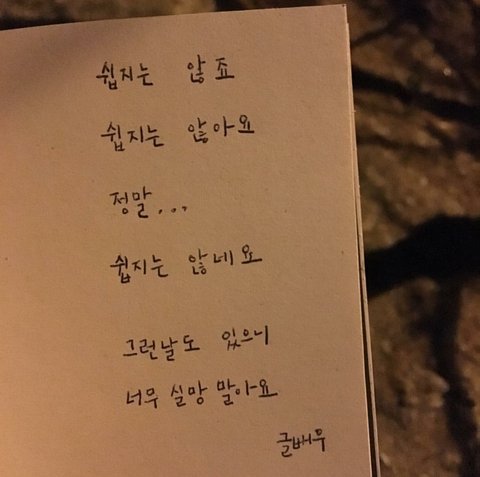 쉽지는 않죠
쉽지는 않아요
정말...
쉽지는 않네요
그런날도 있으니
너무 실망 말아요
글배우